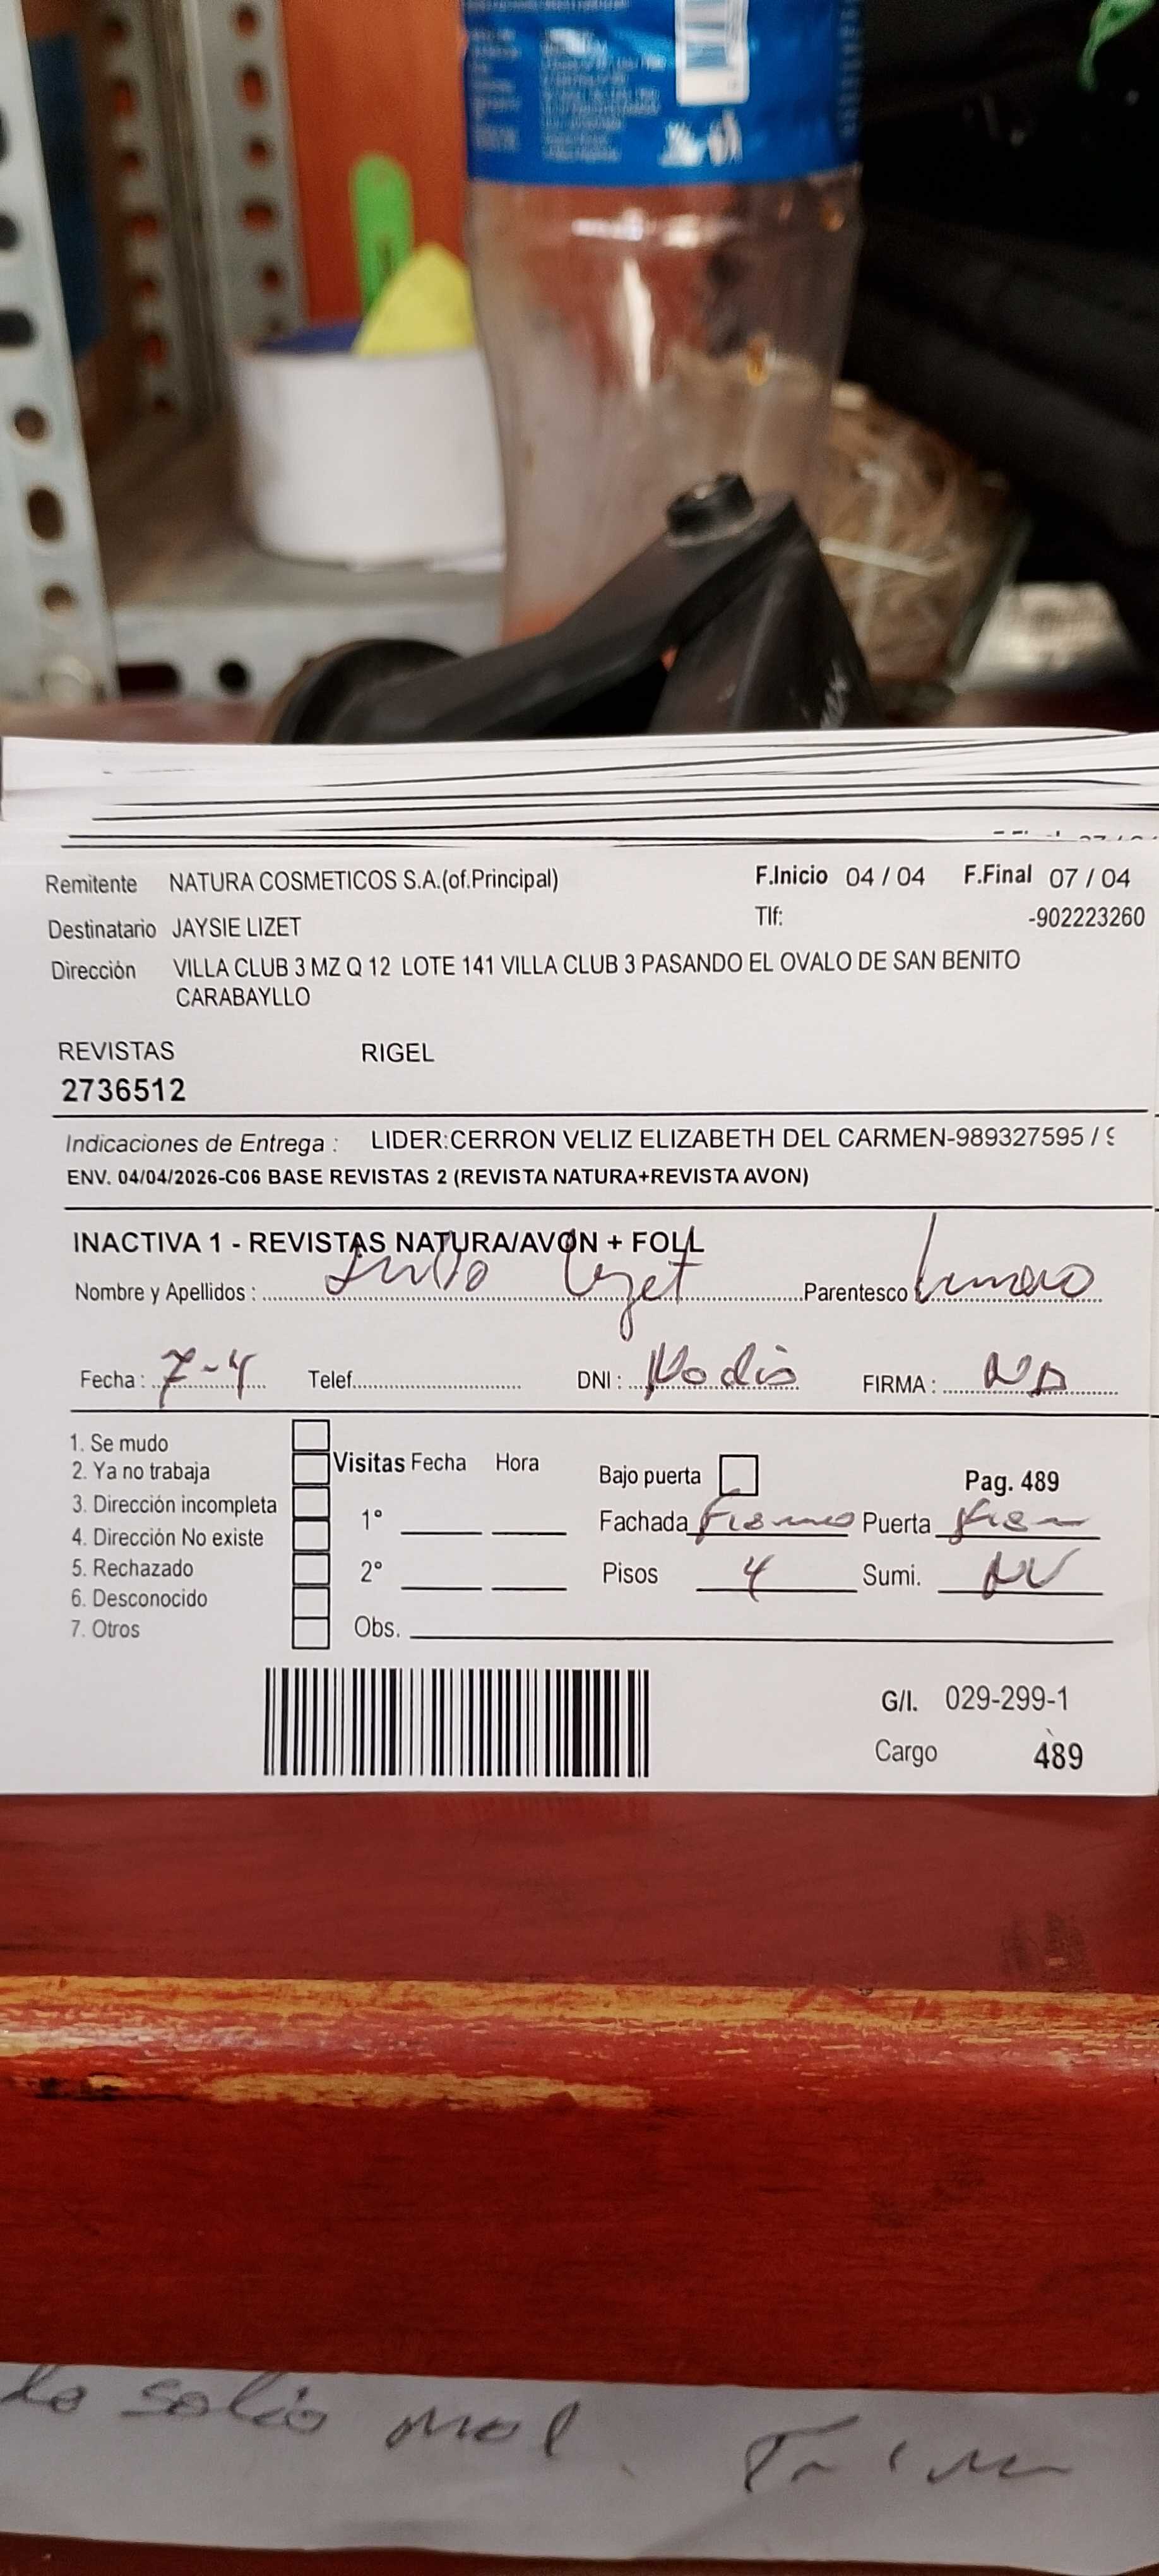 Remitente NATURA COSMETICOS S.A.(of.Principal) F.Inicio 04 / 04 F.Final 07 / 04
Destinatario JAYSIE LIZET Tlf: -902223260
Dirección VILLA CLUB 3 MZ Q 12 LOTE 141 VILLA CLUB 3 PASANDO EL OVALO DE SAN BENITO
CARABAYLLO
REVISTAS RIGEL
2736512
Indicaciones de Entrega : LIDER:CERRON VELIZ ELIZABETH DEL CARMEN-989327595 / 9
ENV. 04/04/2026-C06 BASE REVISTAS 2 (REVISTA NATURA+REVISTA AVON)
INACTIVA 1 - REVISTAS NATURA/AVON + FOLL
Nombre y Apellidos : Lizet Parentesco
Fecha : 7-4 Telef. DNI : No dio FIRMA : ND
1. Se mudo
2. Ya no trabaja Visitas Fecha Hora Bajo puerta Pag. 489
3. Dirección incompleta 1° Fachada Puerta
4. Dirección No existe
5. Rechazado 2° Pisos 4 Sumi. NV
6. Desconocido
7. Otros Obs.
G/I. 029-299-1
Cargo 489
salio mal